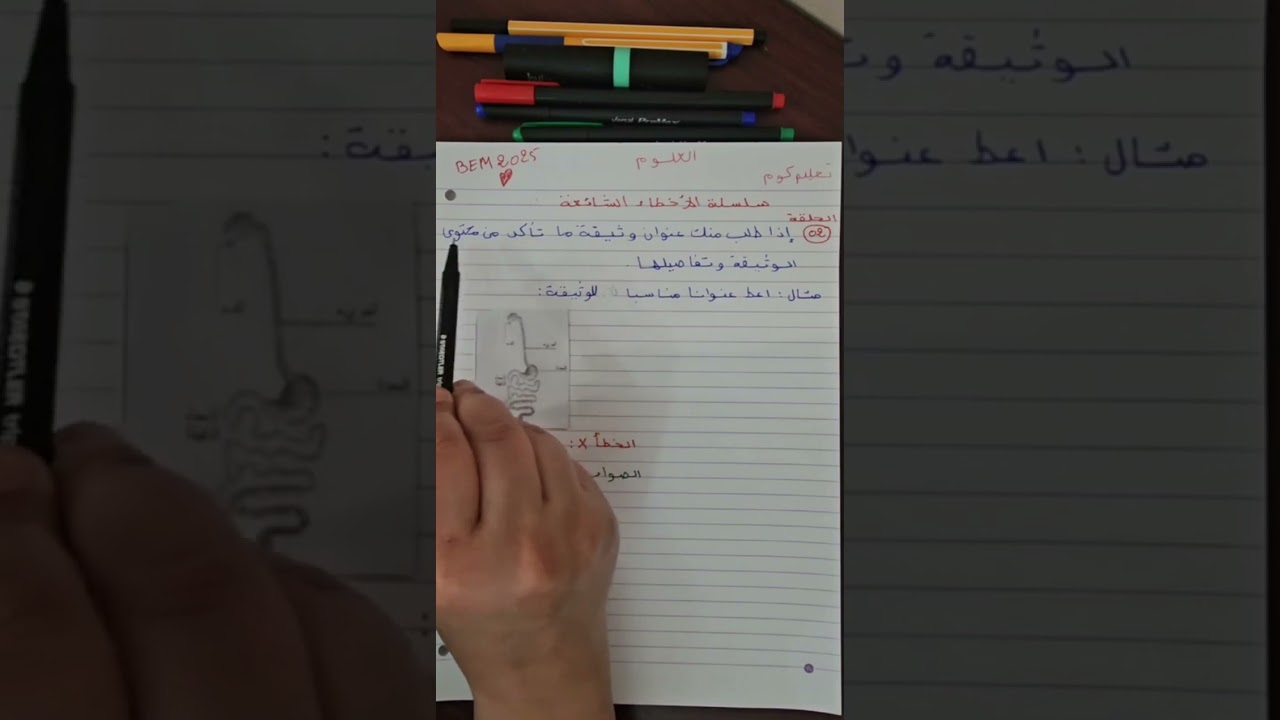 BEM 2025
العلوم
تعليم كوم
سلسلة الأخطاء الشائعة
الحلقة
02 إذا طلب منك عنوان وثيقة ما تأكد من محتوى
الوثيقة وتفاصيلها.
مثال: اعط عنوانا مناسبا للوثيقة:
الخطأ X:
الصواب